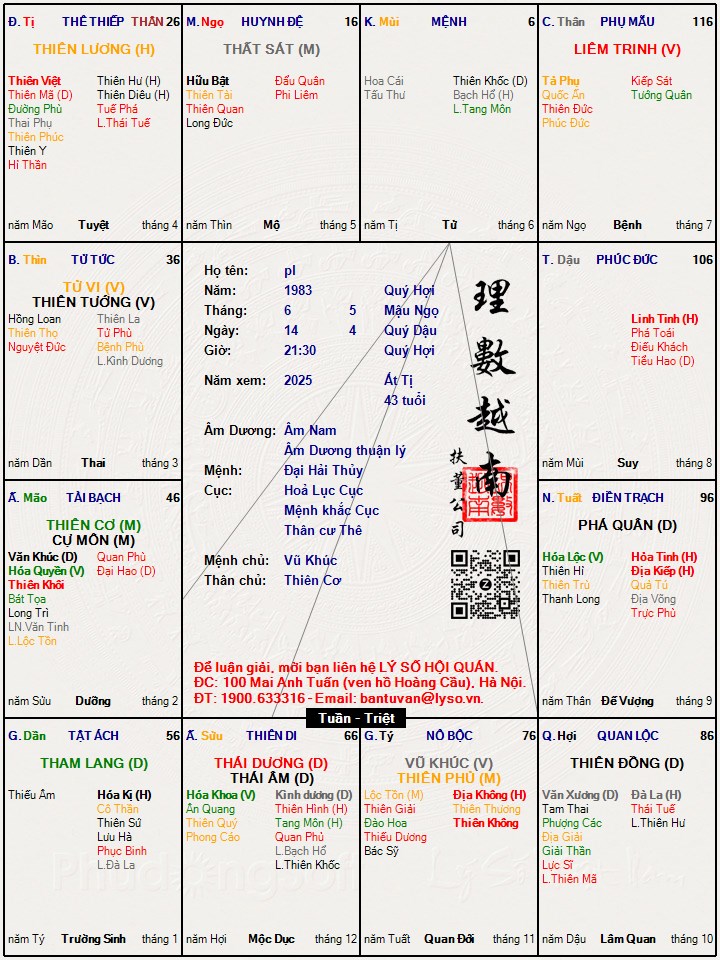 Đ. Tị THÊ THIẾP THÂN 26
THIÊN LƯƠNG (H)
Thiên Việt
Thiên Mã (D)
Đường Phù
Thai Phụ
Thiên Phúc
Thiên Y
Hỉ Thần
Thiên Hư (H)
Thiên Diêu (H)
Tuế Phá
L.Thái Tuế
năm Mão Tuyệt tháng 4
M. Ngọ HUYNH ĐỆ 16
THẤT SÁT (M)
Hữu Bật
Thiên Tài
Thiên Quan
Long Đức
Đẩu Quân
Phi Liêm
năm Thìn Mộ tháng 5
K. Mùi MỆNH 6
Hoa Cái
Tấu Thư
Thiên Khốc (D)
Bạch Hổ (H)
L.Tang Môn
năm Tị Tử tháng 6
C. Thân PHỤ MẪU 116
LIÊM TRINH (V)
Tả Phụ
Quốc Ấn
Thiên Đức
Phúc Đức
Kiếp Sát
Tướng Quân
năm Ngọ Bệnh tháng 7
B. Thìn TỬ TỨC 36
TỬ VI (V)
THIÊN TƯỚNG (V)
Hồng Loan
Thiên Thọ
Nguyệt Đức
Thiên La
Tử Phù
Bệnh Phù
L.Kình Dương
năm Dần Thai tháng 3
Họ tên: pl
Năm: 1983 Quý Hợi
Tháng: 6 5 Mậu Ngọ
Ngày: 14 4 Quý Dậu
Giờ: 21:30 Quý Hợi
Năm xem: 2025 Ất Tị
43 tuổi
Âm Dương: Âm Nam
Âm Dương thuận lý
Mệnh: Đại Hải Thủy
Cục: Hoả Lục Cục
Mệnh khắc Cục
Thân cư Thê
Mệnh chủ: Vũ Khúc
Thân chủ: Thiên Cơ
理數越南
扶董公司
Để luận giải, mời bạn liên hệ LÝ SỐ HỘI QUÁN.
ĐC: 100 Mai Anh Tuấn (ven hồ Hoàng Cầu), Hà Nội.
ĐT: 1900.633316 - Email: bantuvan@lyso.vn.
T. Dậu PHÚC ĐỨC 106
Linh Tinh (H)
Phá Toái
Điếu Khách
Tiểu Hao (D)
năm Mùi Suy tháng 8
Ấ. Mão TÀI BẠCH 46
THIÊN CƠ (M)
CỰ MÔN (M)
Văn Khúc (D)
Hóa Quyền (V)
Thiên Khôi
Bát Tọa
Long Trì
LN.Văn Tinh
L.Lộc Tồn
Quan Phù
Đại Hao (D)
năm Sửu Dưỡng tháng 2
N. Tuất ĐIỀN TRẠCH 96
PHÁ QUÂN (D)
Hóa Lộc (V)
Thiên Hỉ
Thiên Trù
Thanh Long
Hỏa Tinh (H)
Địa Kiếp (H)
Quả Tú
Địa Võng
Trực Phù
năm Thân Đế Vượng tháng 9
Tuần - Triệt
G. Dần TẬT ÁCH 56
THAM LANG (D)
Thiếu Âm
Hóa Kị (H)
Cô Thần
Thiên Sứ
Lưu Hà
Phục Binh
L.Đà La
năm Tý Trường Sinh tháng 1
Ấ. Sửu THIÊN DI 66
THÁI DƯƠNG (D)
THÁI ÂM (D)
Hóa Khoa (V)
Ân Quang
Thiên Quý
Phong Cáo
Kình dương (D)
Thiên Hình (H)
Tang Môn (H)
Quan Phủ
L.Bạch Hổ
L.Thiên Khốc
năm Hợi Mộc Dục tháng 12
G. Tý NÔ BỘC 76
VŨ KHÚC (V)
THIÊN PHỦ (M)
Lộc Tồn (M)
Thiên Giải
Đào Hoa
Thiếu Dương
Bác Sỹ
Địa Không (H)
Thiên Thương
Thiên Không
năm Tuất Quan Đới tháng 11
Q. Hợi QUAN LỘC 86
THIÊN ĐỒNG (D)
Văn Xương (D)
Tam Thai
Phượng Các
Địa Giải
Giải Thần
Lực Sĩ
L.Thiên Mã
Đà La (H)
Thái Tuế
L.Thiên Hư
năm Dậu Lâm Quan tháng 10